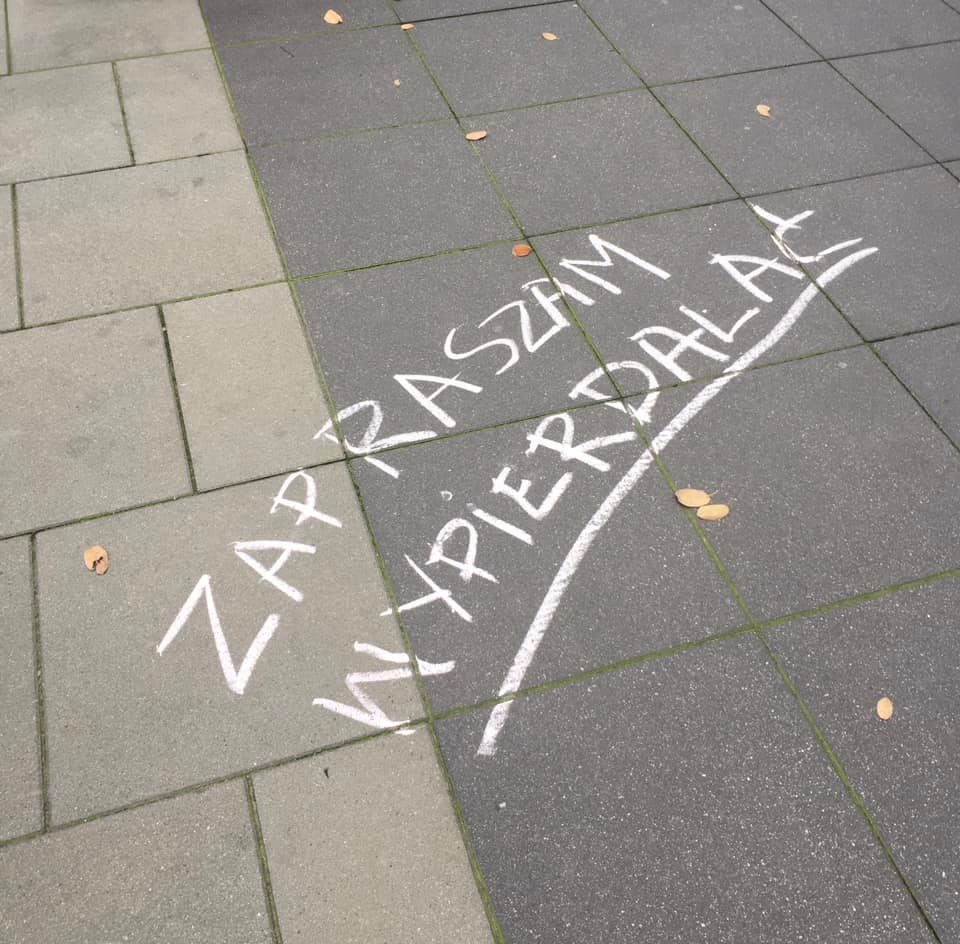 ZAPRASZAM
WYPIERDALAĆ